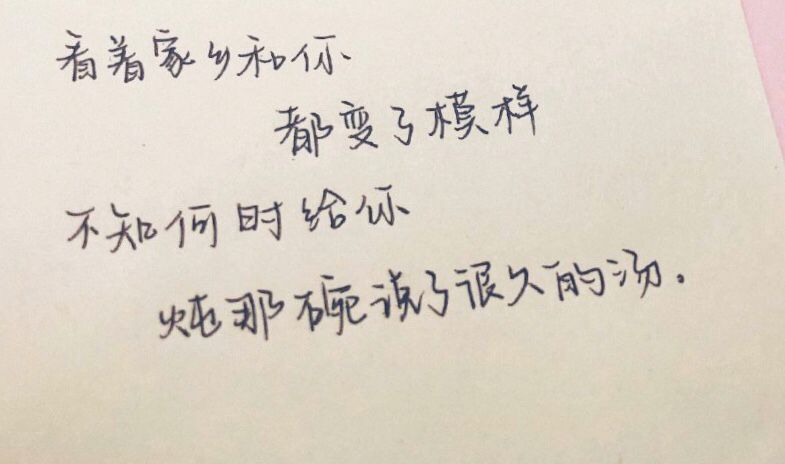 看着家乡和你
都变了模样
不知何时给你
炖那碗说了很久的汤。